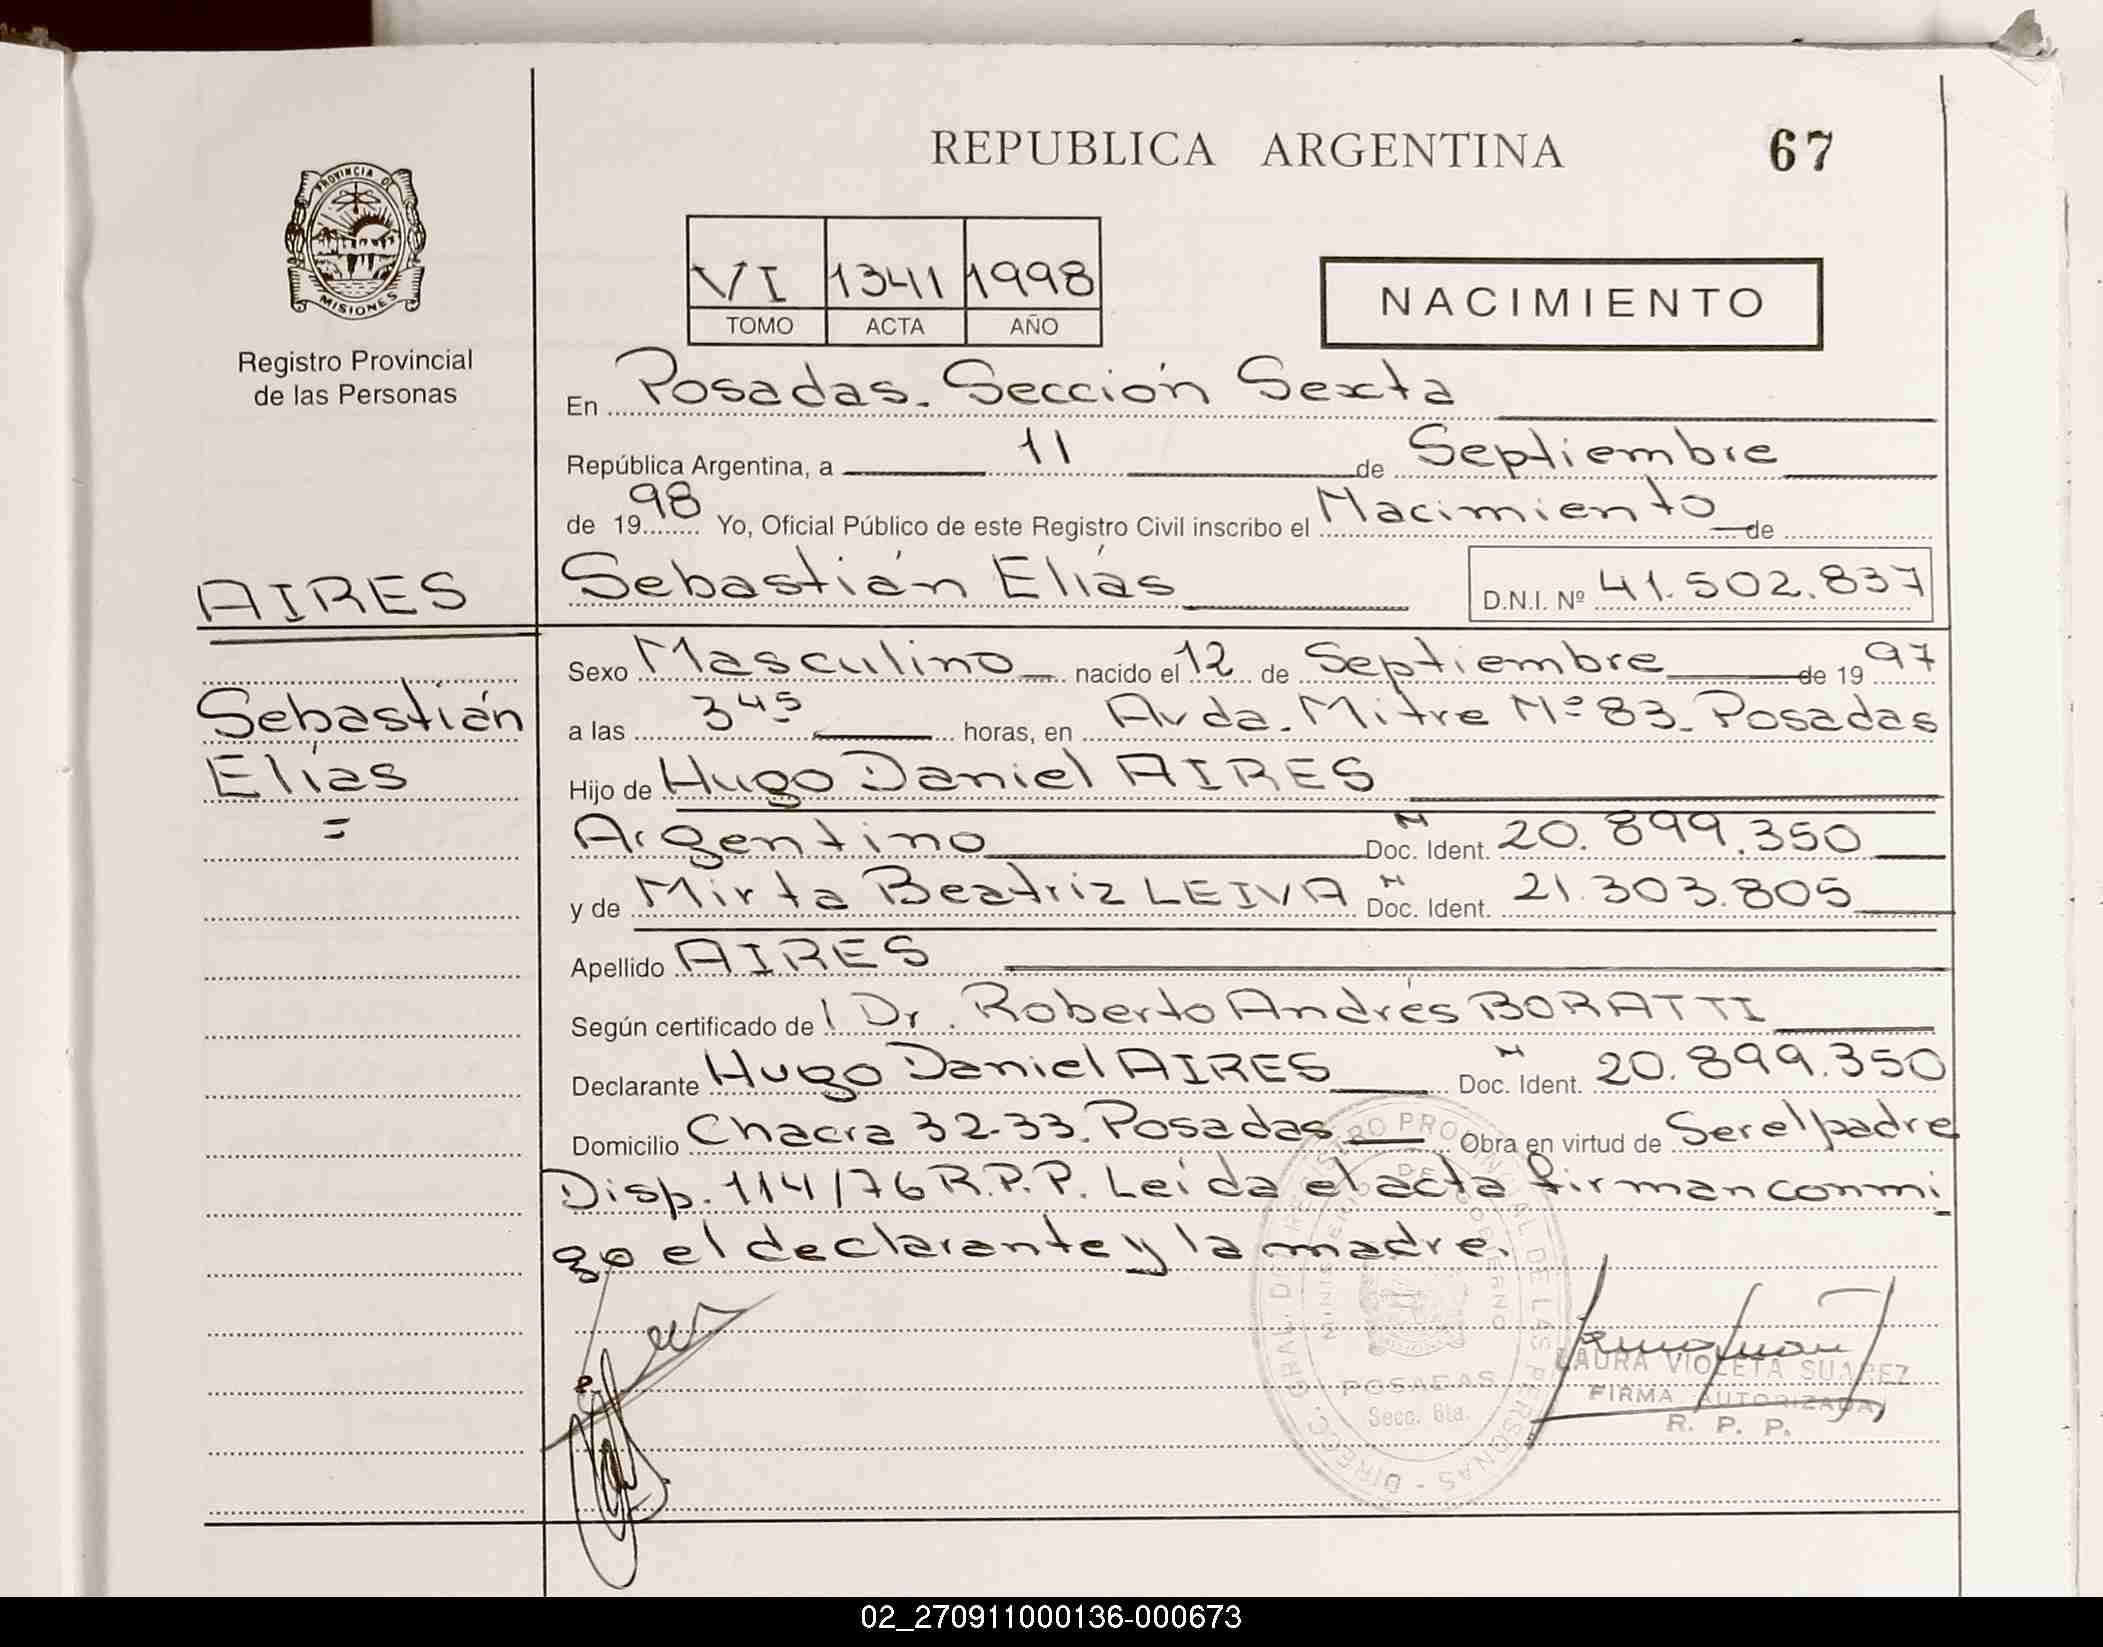 REPUBLICA ARGENTINA
67
PROVINCIA DE
MISIONES
Registro Provincial
de las Personas
VI 1341 1998
TOMO ACTA AÑO
NACIMIENTO
En Posadas. Sección Sexta
República Argentina, a 11 de Septiembre
de 1998 Yo, Oficial Público de este Registro Civil inscribo el Nacimiento de
AIRES
Sebastián Elías D.N.I. Nº 41.502.837
Sebastián
Elías
=
Sexo Masculino nacido el 12 de Septiembre de 1997
a las 3 45 horas, en Avda. Mitre Nº 83. Posadas
Hijo de Hugo Daniel AIRES
Argentino Doc. N Ident. 20.899.350
y de Mirta Beatriz LEIVA Doc. N Ident. 21.303.805
Apellido AIRES
Según certificado de Dr. Roberto Andrés BORATTI
Declarante Hugo Daniel AIRES Doc. N Ident. 20.899.350
Domicilio Chacra 32-33. Posadas Obra en virtud de Ser el padre
Disp. 114/76 R.P.P. Leída el acta firman conmi
go el declarante y la madre.
DIRECC. GRAL. DE REGISTRO PROVINCIAL DE LAS PERSONAS
MINISTERIO DE GOBIERNO
MISIONES
POSADAS
Secc. 6ta.
LAURA VIOLETA SUAREZ
FIRMA AUTORIZADA
R. P. P.
02_270911000136-000673